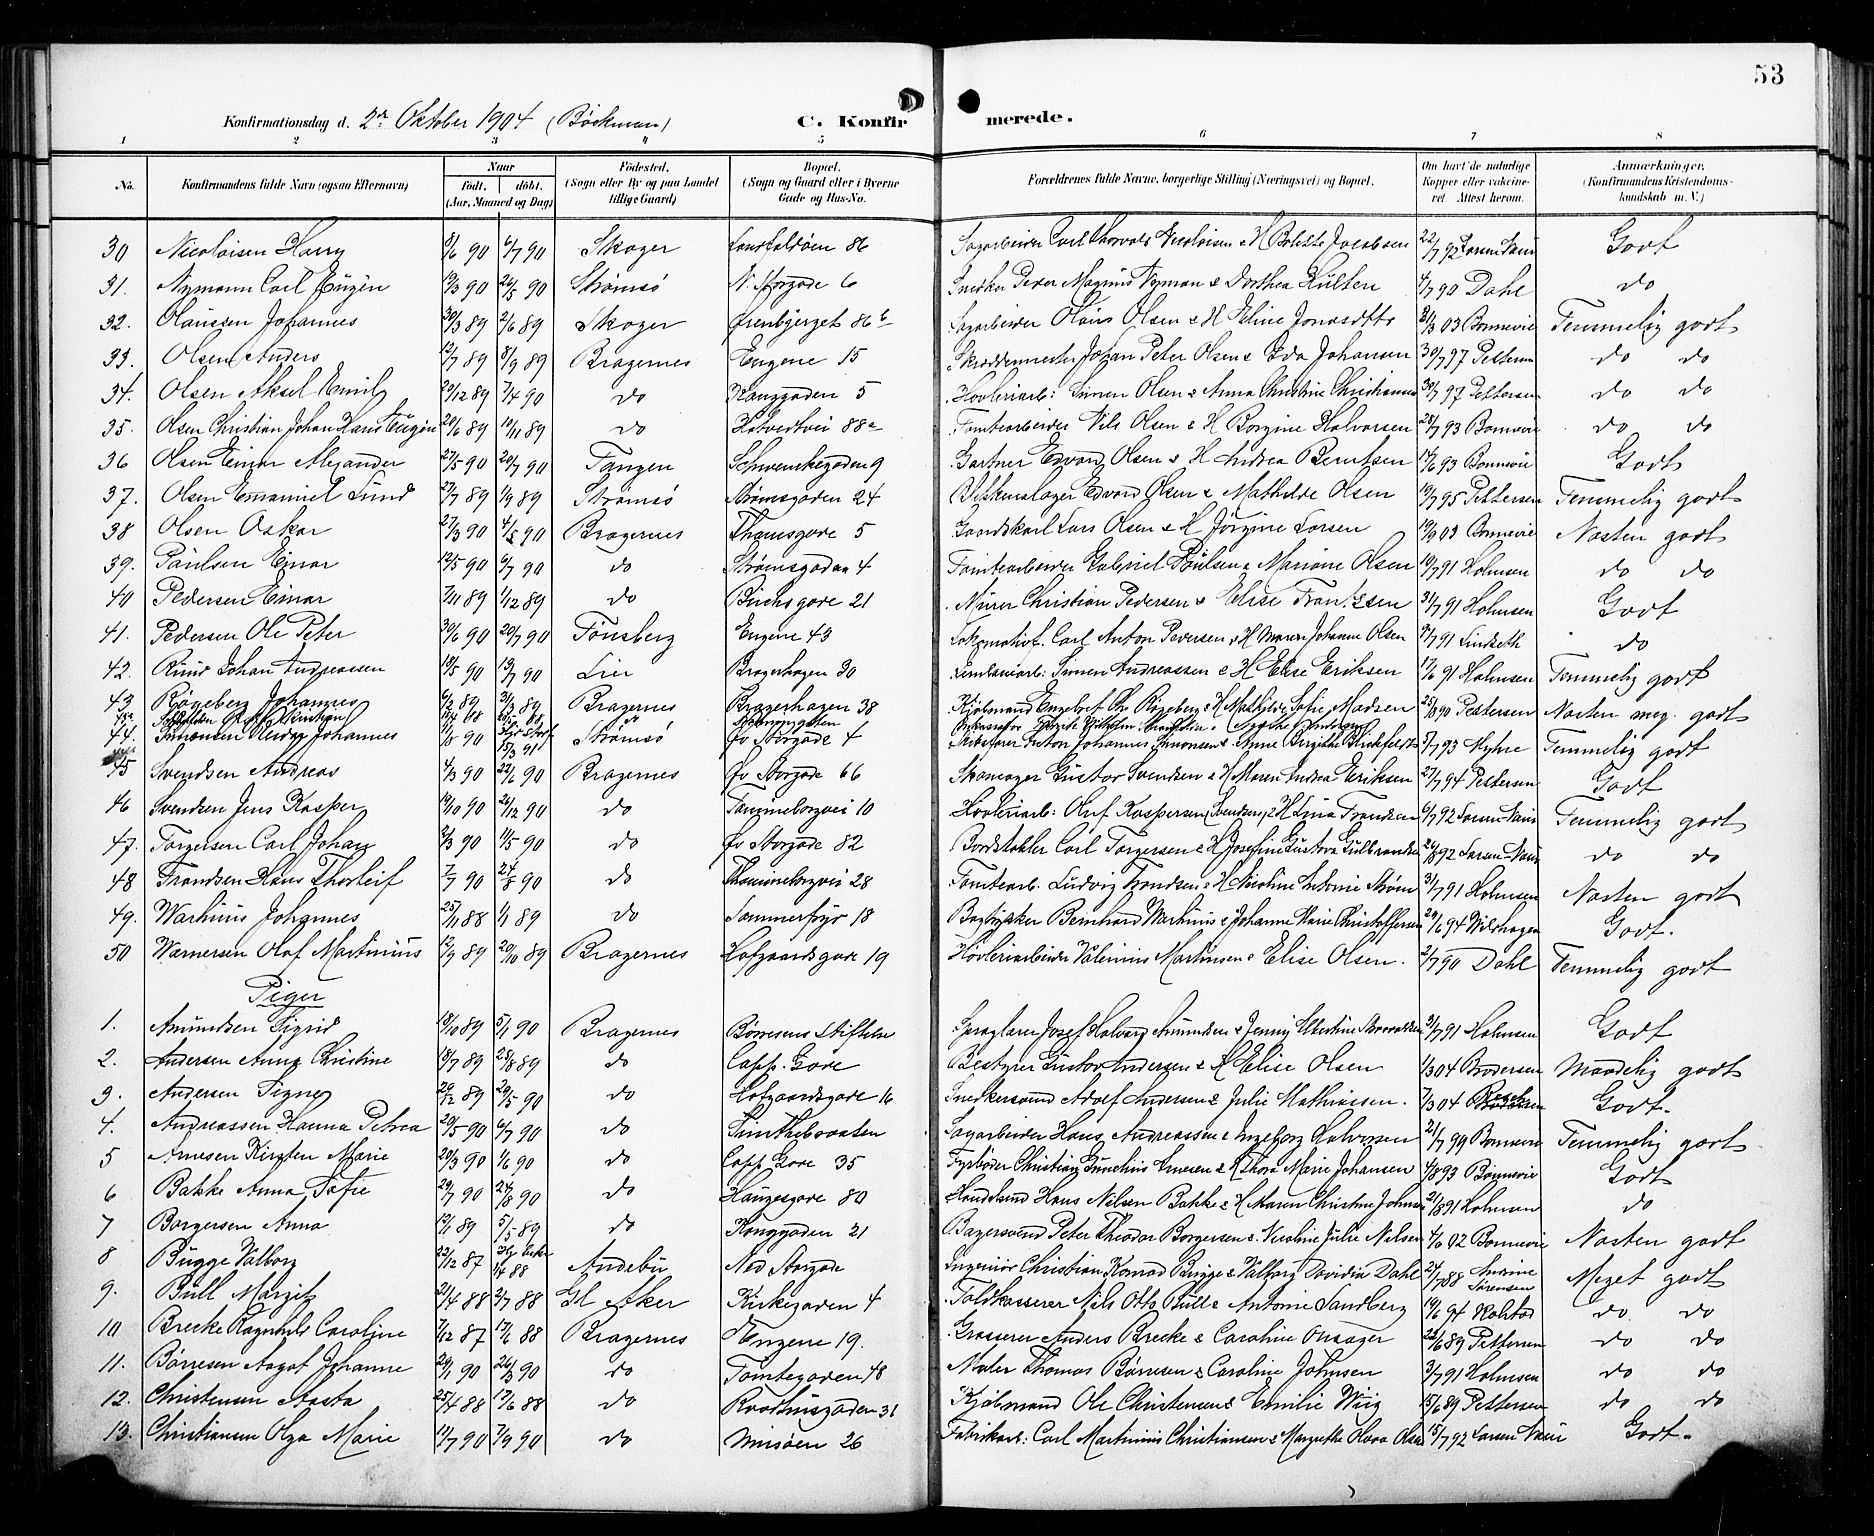 53
Konfirmationsdag d. 2den Oktober 1904 (Böckman) C. Konfirmerede.
1 2 3 4 5 6 7 8
No. Konfirmandens fulde Navn (ogsaa Efternavn) Naar født, døbt. (Aar, Maaned og Dag) Fødested. (Sogn eller By og paa Landet tillige Gaard) Bopæl. (Sogn og Gaard eller i Byerne Gade og Hus-No. Forældrenes fulde Navne, borgerlige Stilling (Næringsvei) og Bopæl. Om havt de naturlige Kopper eller vaccineret Attest herom. Anmærkninger, (Konfirmandens Kristendomskundskab m. V.)
30 Nicolaisen Harry 8/6 90 6/7 90 Skoger 86 Sagarbeider Carl Thorvald Nicolaisen & H Jacobsen 22/7 92 Godt
31. Nymann Carl Eugen 19/3 90 26/5 90 Strømsø N. Storgade 6 Snedker Peder Magnus Nyman & Dorthea Hulten 4/7 90 Dahl do
32. Olaussen Johannes 30/3 89 2/6 89 Skoger Ørenbjerget 86 b Sagarbeider Olaus Olsen & H Eline 03 Bonnevie Temmelig godt
33. Olsen Anders 12/7 89 8/9 89 Bragernes Engene 15 Skreddermester Johan Peter Olsen & Ida Johansen 30/7 97 Pettersen do do
34. Olsen Aksel Emil 20/12 89 7/4 90 do Konggaden 5 Høvleriarb: Simen Olsen & Anna Christine Christiansen 30/7 97 Pettersen do do
35. Olsen Christian Johan Hans Eugen 20/6 89 10/11 89 do 88 a Tomtearbeider Nils Olsen & H Borgine Halvorsen 28/7 93 Bonnevie do do
36 Olsen Einar Alexander 27/5 90 20/7 90 Tangen Schwenkegaden 9 Gartner Edvard Olsen & H Andrea Berntsen 93 Bonnevie Godt
37. Olsen Emanuel Lund 27/7 89 1/9 89 Strømsø Strømsgaden 24 Blikkenslager Edvard Olsen & Mathilde Olsen 19/7 95 Pettersen Temmelig godt
38 Olsen Oskar 27/3 90 4/5 90 Bragernes Thomsgade 5 Gaardskarl Lars Olsen & H Jørgine Larsen 19/9 03 Bonnevie Næsten godt
39. Paulsen Einar 12/5 90 6/7 90 do Strømsgaden 4 Tomtearbeider Gabriel Paulsen & Mariane Olsen 19/7 91 Holmsen do do
40 Pedersen Einar 7/11 89 1/12 89 do Buchsgade 21 Murer Christian Pedersen & Elise Frantzsen 31/7 91 Holmsen Godt
41. Pedersen Ole Peter 30/6 90 20/7 90 Tønsberg Engene 43 Lokomotivf. Carl Anton Pedersen & H Maren Johanne Olsen 9/7 91 Lindseth do
42. Ruud Johan Andreassen 18/5 90 13/7 90 Lier Bragerhagen 30 Simen Andreassen & H Elise Eriksen 17/6 91 Holmsen Temmelig godt
43 Røgeberg Johannes 6/2 89 31/3 89 Bragernes Bragerhagen 38 Kjøbmand Engebret Chr. Røgeberg & H Mathilde Sofie Madsen 25/8 90 Pettersen Næsten meg. godt
44. Simonsen Johannes 90 15/3 91 Strømsø Øv Storgade 4 Gustav Johannes Simonsen & Anne Birgithe 5/7 93 Myhre Temmelig godt
45 Svendsen Andreas 4/3 90 22/6 90 Bragernes Øv Storgade 66 Skomager Gustav Svendsen & H Maren Andrea Eriksen 27/7 94 Pettersen Godt
46 Svendsen Jens Kasper 19/10 90 21/12 90 do 10 Høvleriarb: Oluf Kaspersen (Svendsen) & H Lina Trondsen 6/7 92 Temmelig godt
47. Torgersen Carl Johan 2/3 90 11/5 90 do Øv Storgade 82 Bordstabler Carl Torgersen & H Josefine Gustava Gulbrandsen 92 do do
48 Trondsen Hans Thorleif 7/7 90 24/8 90 do 28 Tomtearb. Ludvig Trondsen & H Nicoline Antonie Strøm 31/7 91 Holmsen Næsten godt
49. Warhuus Johannes 25/11 88 1/1 89 do Sommerfryd 18 Bogtrykker Bernhard Warhuus & Johanne Marie Christoffersen 94 Wilshagen Godt.
50 Warnersen Olaf Martinius 12/9 89 20/10 89 Bragernes Hofgaardsgade 19 Høvleriarbeider Martinsen & Elise Olsen. 2/7 90 Dahl Temmelig godt
Piger
1. Amundsen Sigrid 18/10 89 5/1 90 Bragernes Børresens Stiftelse Josef Halvard Amundsen & Jenny 31/7 91 Holmsen Godt
2. Andersen Anna Christine 18/7 89 25/8 89 do Capp. Gade Bestyrer Gustav Andersen & H Elise Olsen 1/3 04 Brodersen Maadelig godt
3. Andersen Signe 29/12 89 20/5 90 do Hofgaardsgade 16 Snekkersvend Adolf Andersen & Julie Mathiassen. 7/3 04 Godt.
4. Andreassen Hanna Petrea 20/5 90 6/7 90 do Sagarbeider Hans Andreassen & Ingeborg Halvorsen 21/7 99 Bonnevie Temmelig godt
5 Arnesen Kirsten Marie 20/3 90 1/6 90 do Capp. Gade 35 Fyrbøder Christian Arnesen & H Thora Marie Johansen 4/8 93 Bonnevie Godt
6 Bakke Anna Sofie 29/7 90 24/8 90 do Haugesgade 80 Hans Nilsen Bakke & H Maren Christine 21/8 91 Holmsen do
7 Borgersen Anna 89 5/5 89 do Konggaden 21 Bagersvend Peter Theodor Borgersen & Nicoline Julie Nilsen 4/6 02 Bonnevie Næsten godt
8 Bugge Valborg 22/12 87 1/4 88 Andebu Ned Storgade Ingeniør Christian Konrad Bugge & Valborg Davidia Dahl 24/7 88 Andrine Sørensen Meget godt
9. Bull Margit 21/4 88 2/7 88 Gl Aker Kirkegaden 4 Toldkasserer Nils Otto Bull & Antonie Sandberg 19/6 94 do do
10 Brecke Ragnhild Caroline 7/12 87 17/6 88 Bragernes Engene 19. Grosserer Anders Brecke & Caroline Onsager 22/6 89 Pettersen do do
11. Børresen Aagot Johanne 29/1 90 26/3 90 do Tomtegaden 48 Maler Thomas Børresen & Caroline Johnsen 3/7 91 Holmsen do do
12. Christensen Aasta 25/4 88 12/6 88 do Raadhusgaden 31 Kjøbmand Ole Christensen & Emilie Wiig 15/6 89 Pettersen do do
13. Christiansen Olga Marie 11/7 90 7/9 90 do Musøen 26 Fabrikarb: Carl Martinius Christiansen & Margrethe Olava Olsen 15/7 92 Godt.